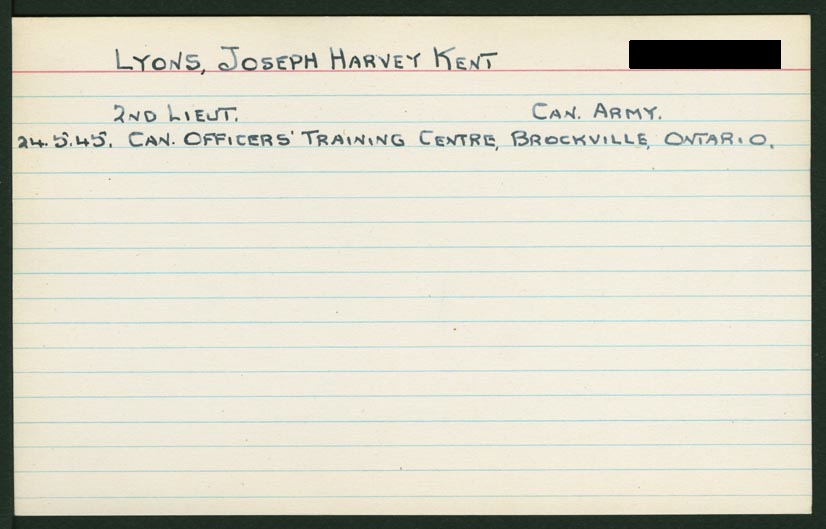 LYONS, JOSEPH HARVEY KENT
2ND LIEUT. CAN. ARMY.
24.5.45. CAN. OFFICERS' TRAINING CENTRE, BROCKVILLE, ONTARIO.